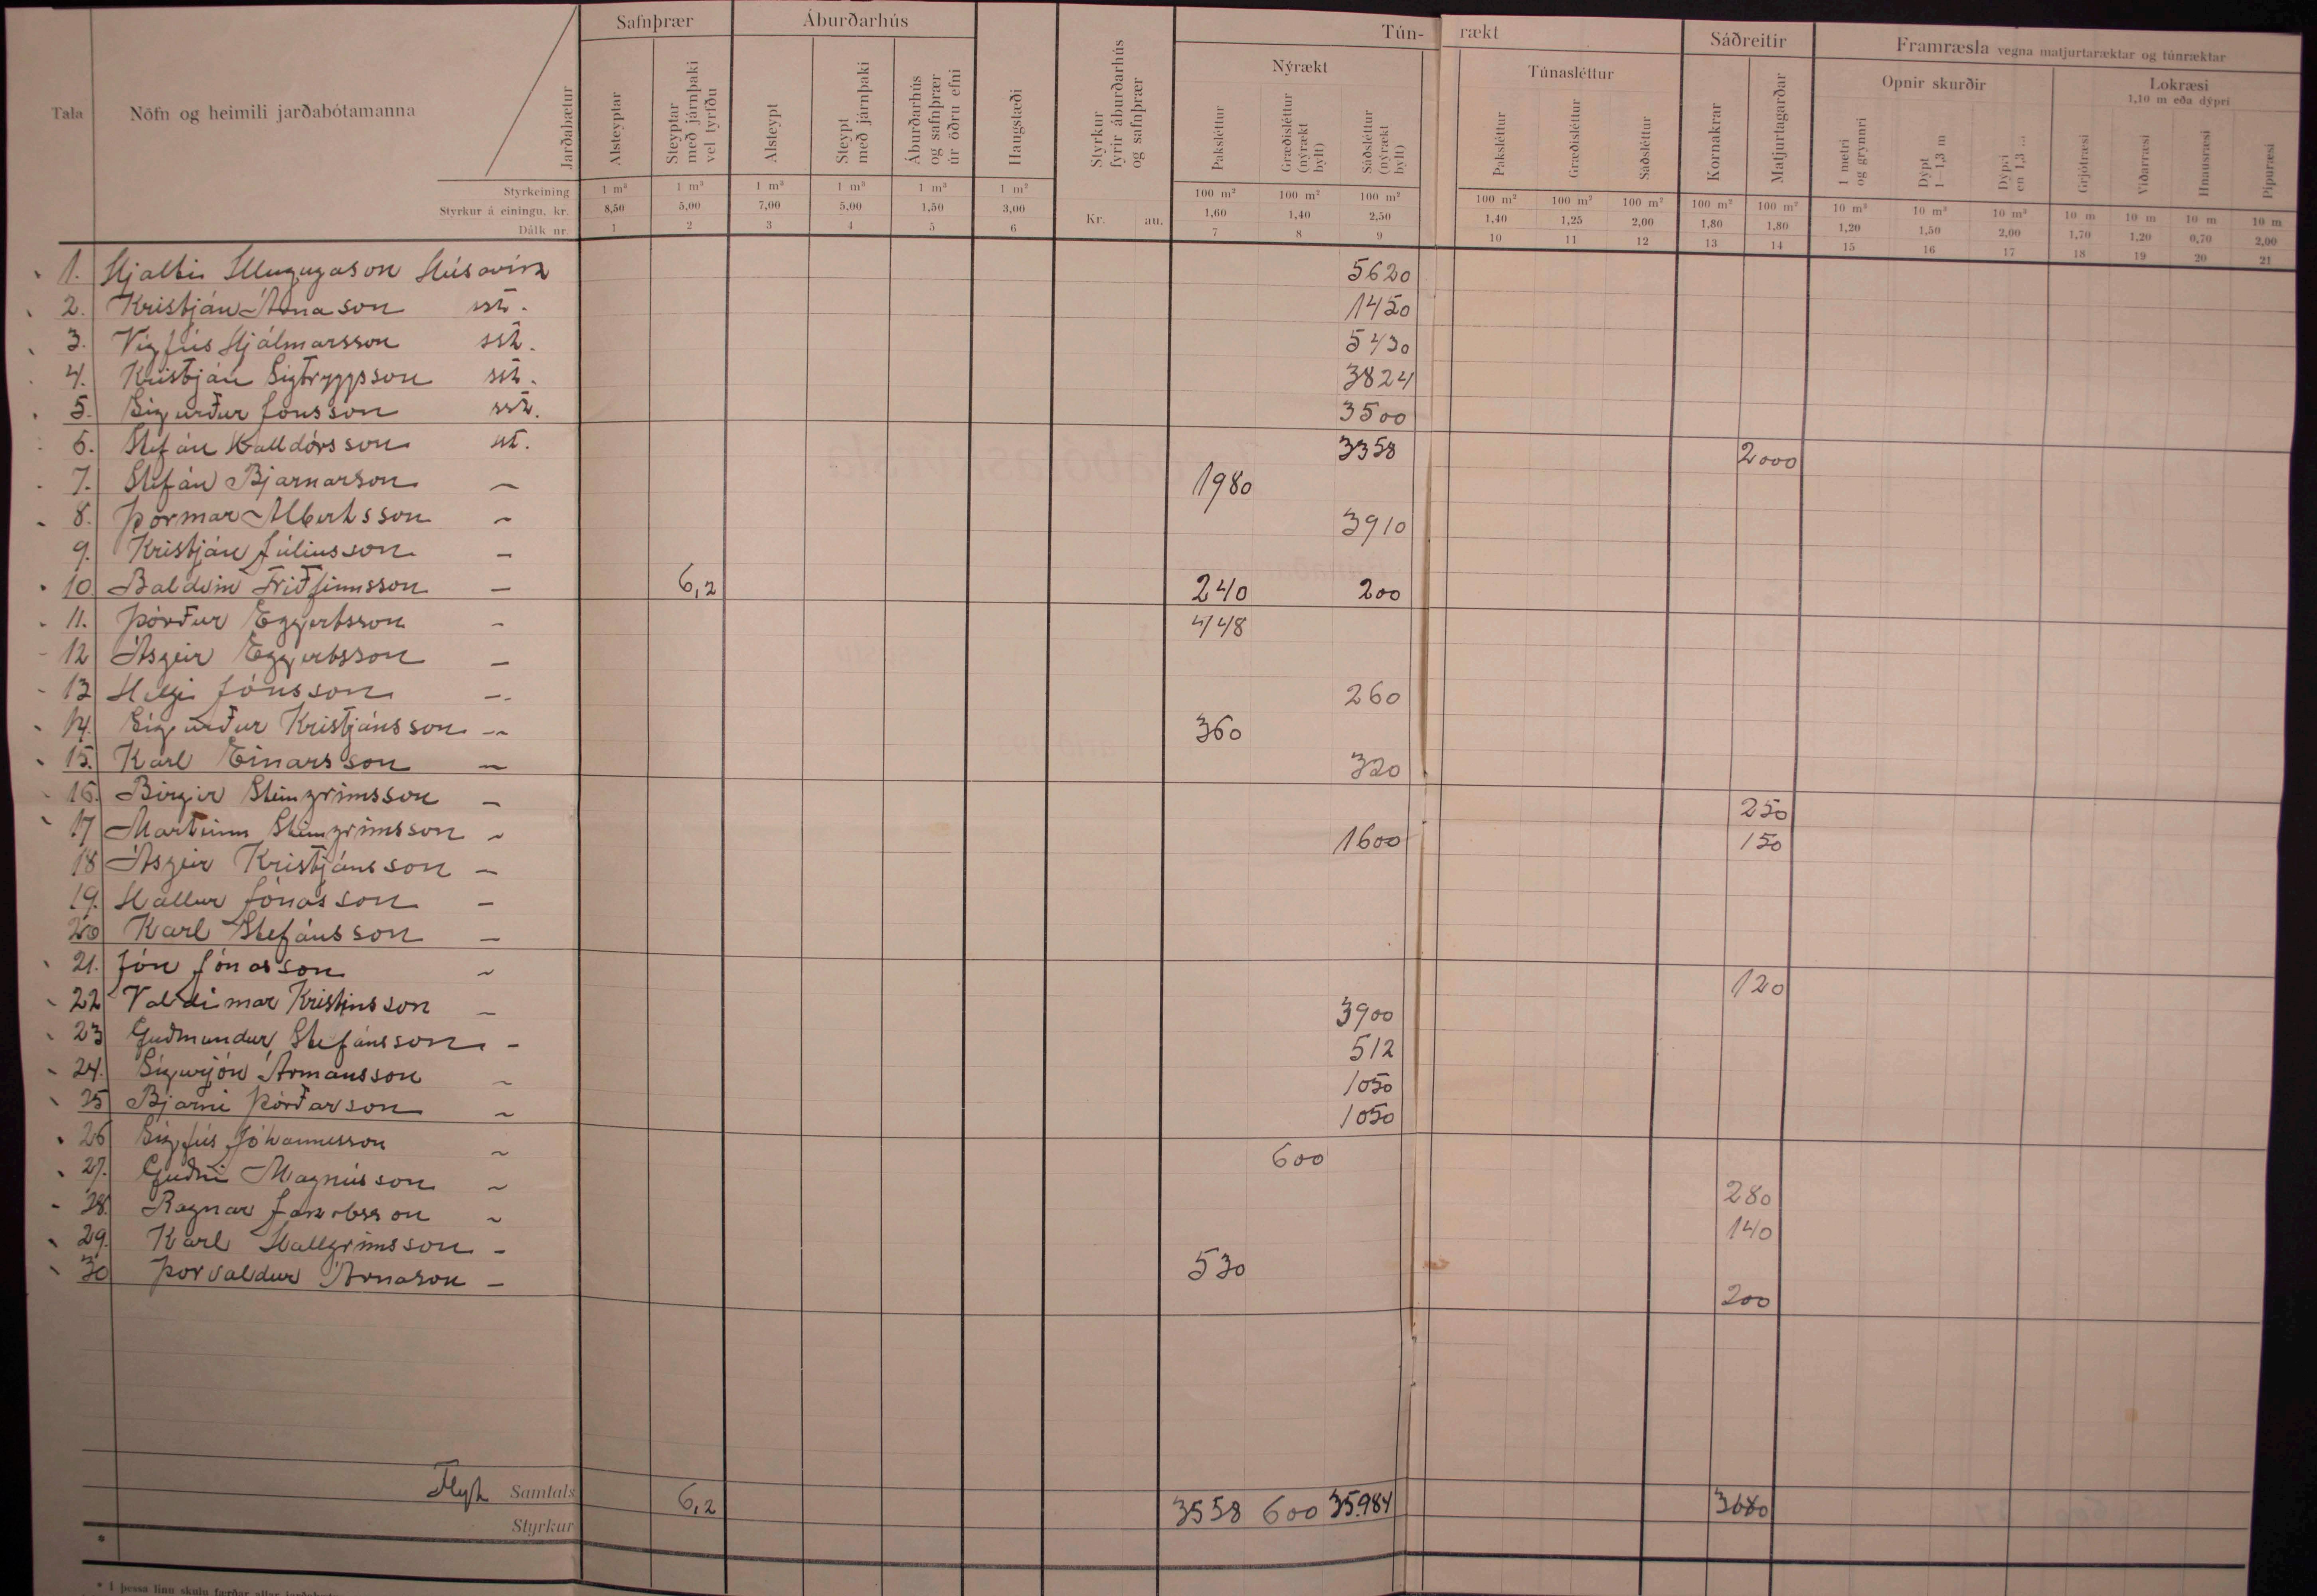 Safnþrær Áburðarhús Tún- rækt Sáðreitir Framræsla vegna matjurtaræktar og túnræktar
Nýrækt Túnasléttur Opnir skurðir Lokræsi
1,10 m eða dýpri
Tala Nöfn og heimili jarðabótamanna Jarðabætur
Alsteyptar
Steyptar með járnþaki vel tyrfðu
Alsteypt
Steypt með járnþaki
Áburðarhús og safnþrær úr öðru efni
Haugstæði
Styrkur fyrir áburðarhús og safnþrær
Þaksléttur
Græðisléttur (nýrækt bylt)
Sáðsléttur (nýrækt bylt)
Þaksléttur
Græðisléttur
Sáðsléttur
Kornakrar
Matjurtagarðar
1 metri og grynnri
Dýpt 1–1,3 m
Dýpri en 1,3 m
Grjótræsi
Viðarræsi
Hnausræsi
Pípuræsi
Styrkeining 1 m³ 1 m³ 1 m³ 1 m³ 1 m³ 1 m² 100 m² 100 m² 100 m² 100 m² 100 m² 100 m² 100 m² 100 m² 10 m³ 10 m³ 10 m³ 10 m 10 m 10 m 10 m
Styrkur á einingu. kr. 8,50 5,00 7,00 5,00 1,50 3,00 Kr. au. 1,60 1,40 2,50 1,40 1,25 2,00 1,80 1,80 1,20 1,50 2,00 1,70 1,20 0,70 2,00
Dálk nr. 1 2 3 4 5 6 7 8 9 10 11 12 13 14 15 16 17 18 19 20 21
1. Hjalti Illugugason Húsavík 5620
2. Kristján Árnason sst. 1450
3. Vigfús Hjálmarsson sst. 5430
4. Kristján Sigtryggsson sst. 3824
5. Sigurður Jónsson sst. 3500
6. Stefán Halldórsson st. 3358 2000
7. Stefán Bjarnarson — 1980
8. Þormar Albertsson — 3910
9. Kristján Júliusson —
10 Baldvin Friðfinnsson — 6,2 240 200
11. Þórður Eggertsson — 448
12 Ásgeir Eggertsson —
13 Helgi Jónsson — 260
14. Sigurður Kristjánsson — 360
15. Karl Einarsson — 320
16. Birgir Steingrímsson — 250
17 Marteinn Steingrímsson — 1600 150
18 Ásgeir Kristjánsson —
19. Hallur Jónasson —
20 Karl Stefánsson —
21. Jón Jónasson — 120
22 Valdimar Kristinsson — 3900
23 Guðmundur Stefánsson — 512
24. Sigurjón Ármansson — 1050
25 Bjarni Þórðarson — 1050
26 Sigfús Jóhannesson — 600
27. Guðni Magnússon — 280
28. Ragnar Jakobsson — 140
29. Karl Hallgrímsson — 530
30 Þorvaldur Árnason — 200
Flyt Samtals 6,2 3558 600 35.984 3680
Styrkur
*
* Í þessa línu skulu færðar allar